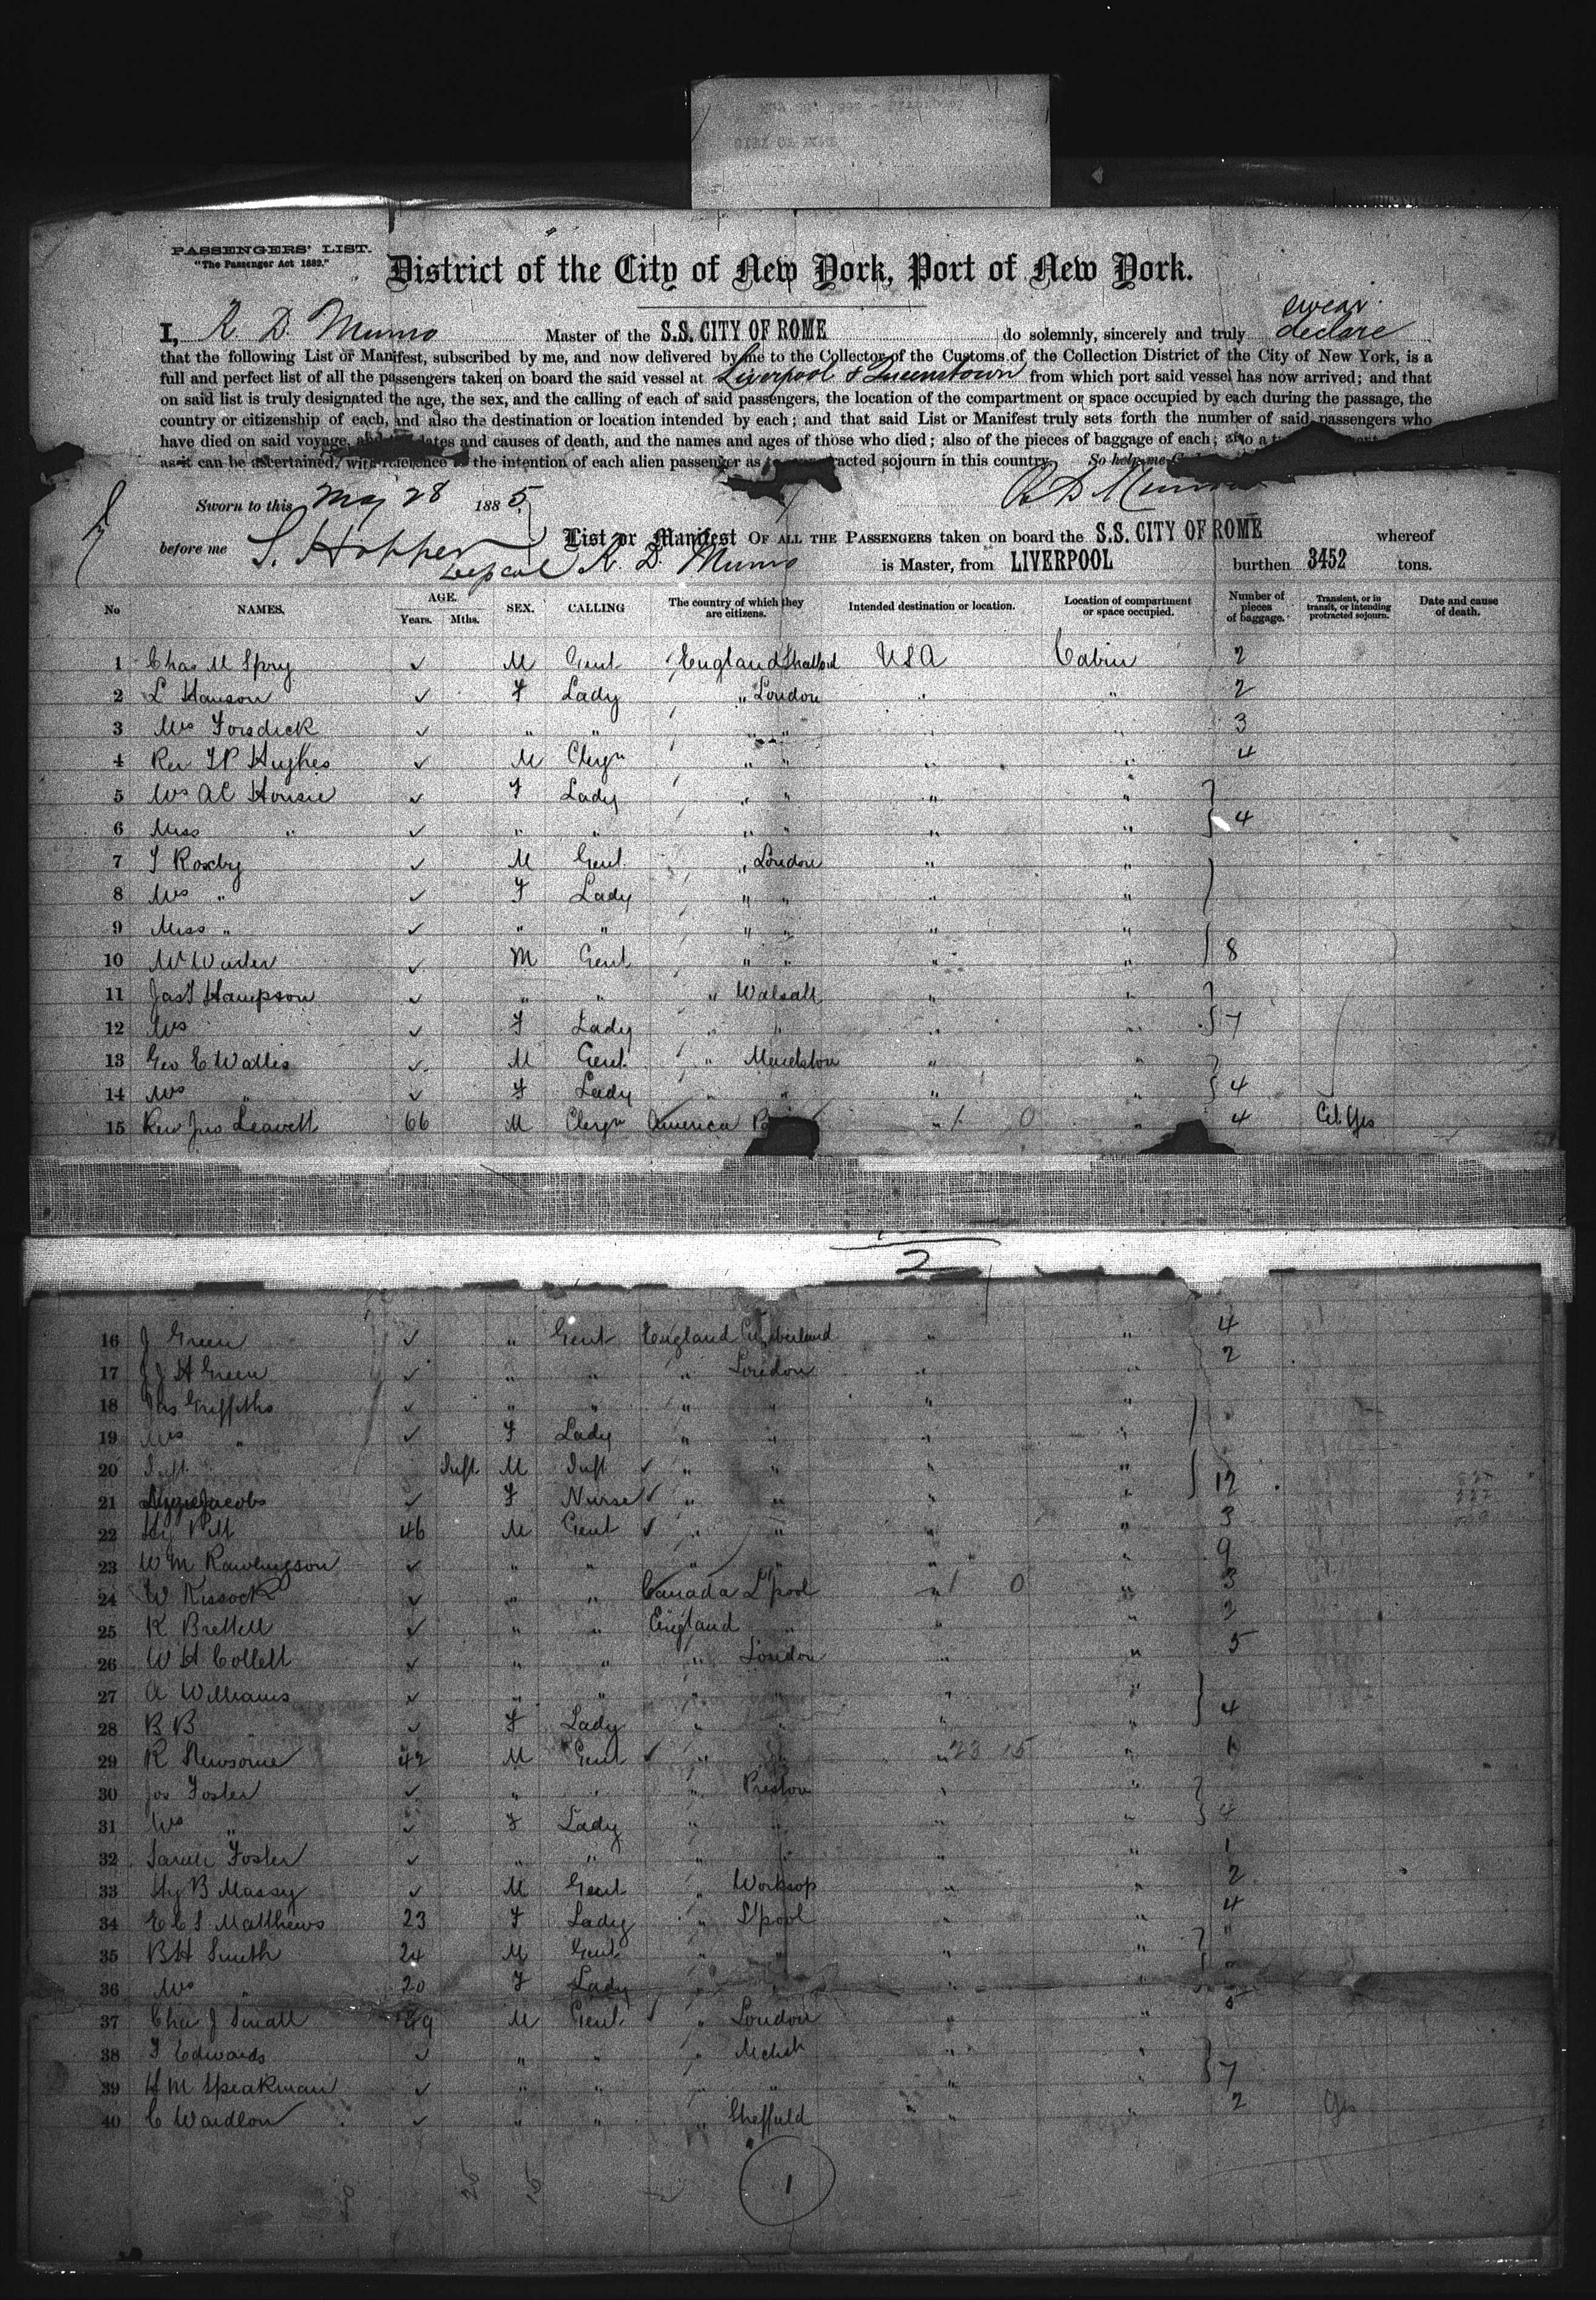 PASSENGERS' LIST.
"The Passenger Act 1882."
District of the City of New York, Port of New York.
swear
I, R. D. Munro Master of the S.S. CITY OF ROME do solemnly, sincerely and truly declare
that the following List or Manifest, subscribed by me, and now delivered by me to the Collector of the Customs of the Collection District of the City of New York, is a
full and perfect list of all the passengers taken on board the said vessel at Liverpool & Queenstown from which port said vessel has now arrived; and that
on said list is truly designated the age, the sex, and the calling of each of said passengers, the location of the compartment or space occupied by each during the passage, the
country or citizenship of each, and also the destination or location intended by each; and that said List or Manifest truly sets forth the number of said passengers who
have died on said voyage, and dates and causes of death, and the names and ages of those who died; also of the pieces of baggage of each; also a
as it can be ascertained, with reference to the intention of each alien passenger as to protracted sojourn in this country. So help me
Sworn to this May 28 1885 R D Munro
before me S. Hopper
List or Manifest OF ALL THE PASSENGERS taken on board the S.S. CITY OF ROME whereof
R. D. Munro is Master, from LIVERPOOL burthen 3452 tons.
No NAMES. AGE. Years. Mths. SEX. CALLING The country of which they are citizens. Intended destination or location. Location of compartment or space occupied. Number of pieces of baggage. Transient, or in transit, or intending protracted sojourn. Date and cause of death.
1 Chas M Spry ✓ M Gent England USA Cabin 2
2 L Hanson ✓ F Lady " London " " 2
3 Mrs Forsdick ✓ " " " " " " 3
4 Rev T P Hughes ✓ M Clergn " " " " 4
5 Mrs A C Housie ✓ F Lady " " " "
6 Miss " ✓ " " " " " " 4
7 T Roxby ✓ M Gent " London " "
8 Mrs " ✓ F Lady " " " "
9 Miss " ✓ " " " " " "
10 W Wurler ✓ M Gent " " " " 8
11 Jas T Hampson ✓ " " " Walsall " "
12 Mrs ✓ F Lady " " " " 7
13 Geo E Wallis ✓ M Gent " " "
14 Mrs " ✓ F Lady " " " " 4
15 Rev Jno Leavett 66 M Clergn America " 1 0 " 4 Cit Yes
2
16 J Green ✓ " Gent England Cumberland " " 4
17 J J H Green ✓ " " " London " " 2
18 Jas Griffiths ✓ " " " " " "
19 Mrs " ✓ F Lady " " " "
20 Inft Inft M Inft ✓ " " " "
21 Lizzie Jacobs ✓ F Nurse ✓ " " " " 12
22 Hy Pitt 46 M Gent ✓ " " " " 3
23 W M Rawlingson ✓ " " " " " " 9
24 W Kissock ✓ " " Canada L'pool " 1 0 " 3
25 R Brettell ✓ " " England " " " 2
26 W H Collett ✓ " " " London " " 5
27 A Williams ✓ " " " " " "
28 B B " ✓ F Lady " " " " 4
29 R Newsome 42 M Gent ✓ " " " 23 15 " 1
30 Jos Foster ✓ " " " Preston " "
31 Mrs " ✓ F Lady " " " " 4
32 Sarah Foster ✓ " " " " " " 1
33 Hy B Massey ✓ M Gent " Worksop " " 2
34 E C S Matthews 23 F Lady " L'pool " " 4
35 B H Smith 24 M Gent " " " " "
36 Mrs " 20 F Lady " " " " "
37 Chas J Small 49 M Gent ✓ " London " "
38 T Edwards ✓ " " " " "
39 H M Speakman ✓ " " " " " " 7
40 C Wardlow ✓ " " " Sheffield " " 2 Yes
1